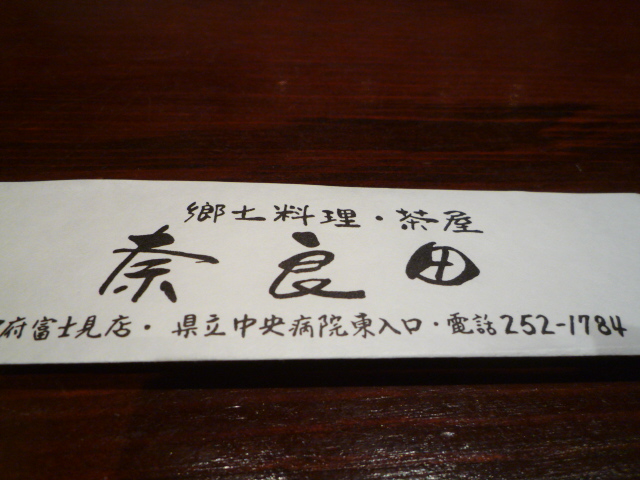 郷土料理・茶屋
奈良田
府富士見店・県立中央病院東入口・電話252-1784